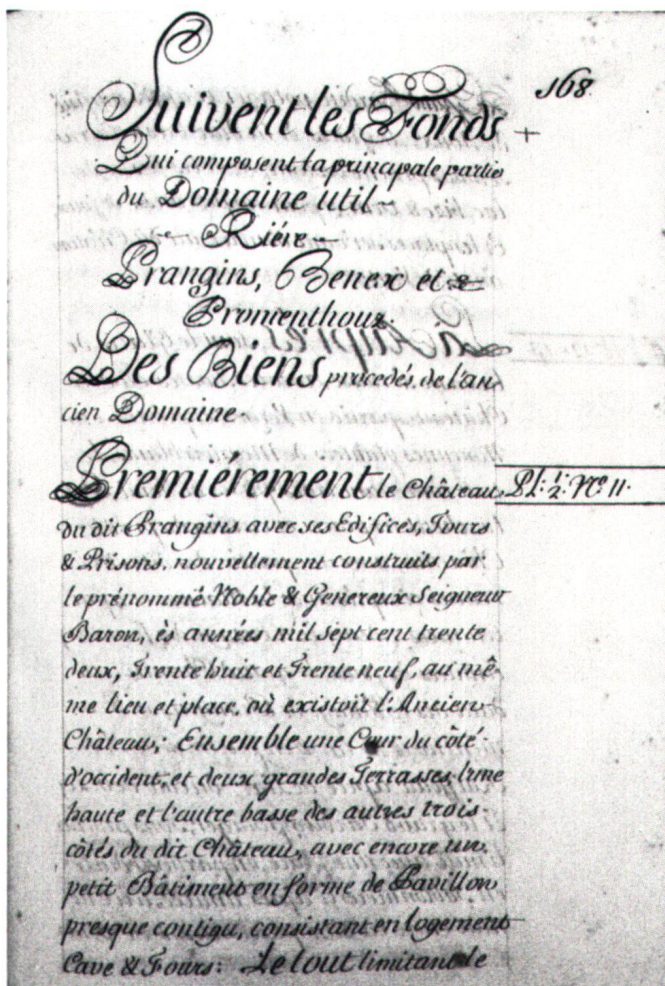 168.
Suivent les Fonds +
Qui composent la principale partie
du Domaine util
Riére
Prangins, Benex et
Promenthoux.
Des Biens procedés de l'an-
cien Domaine
Premiérement le Château Pl: 1/2. No. 11.
du dit Prangins avec ses Edifices, Tours
& Prisons, nouvellement construits par
le prénommé Noble & Genereux Seigneur
Baron, ès années mil sept cent trente
deux, Trente huit et Trente neuf, au mê-
me lieu et place, où existoit l'Ancien
Château; Ensemble une Cour du côté
d'occident, et deux grandes Terrasses, l'une
haute et l'autre basse des autres trois
côtés du dit Château, avec encore un
petit Bâtiment en forme de Pavillon
presque contigu, consistant en logement
Cave & Fours: Le tout limitant le